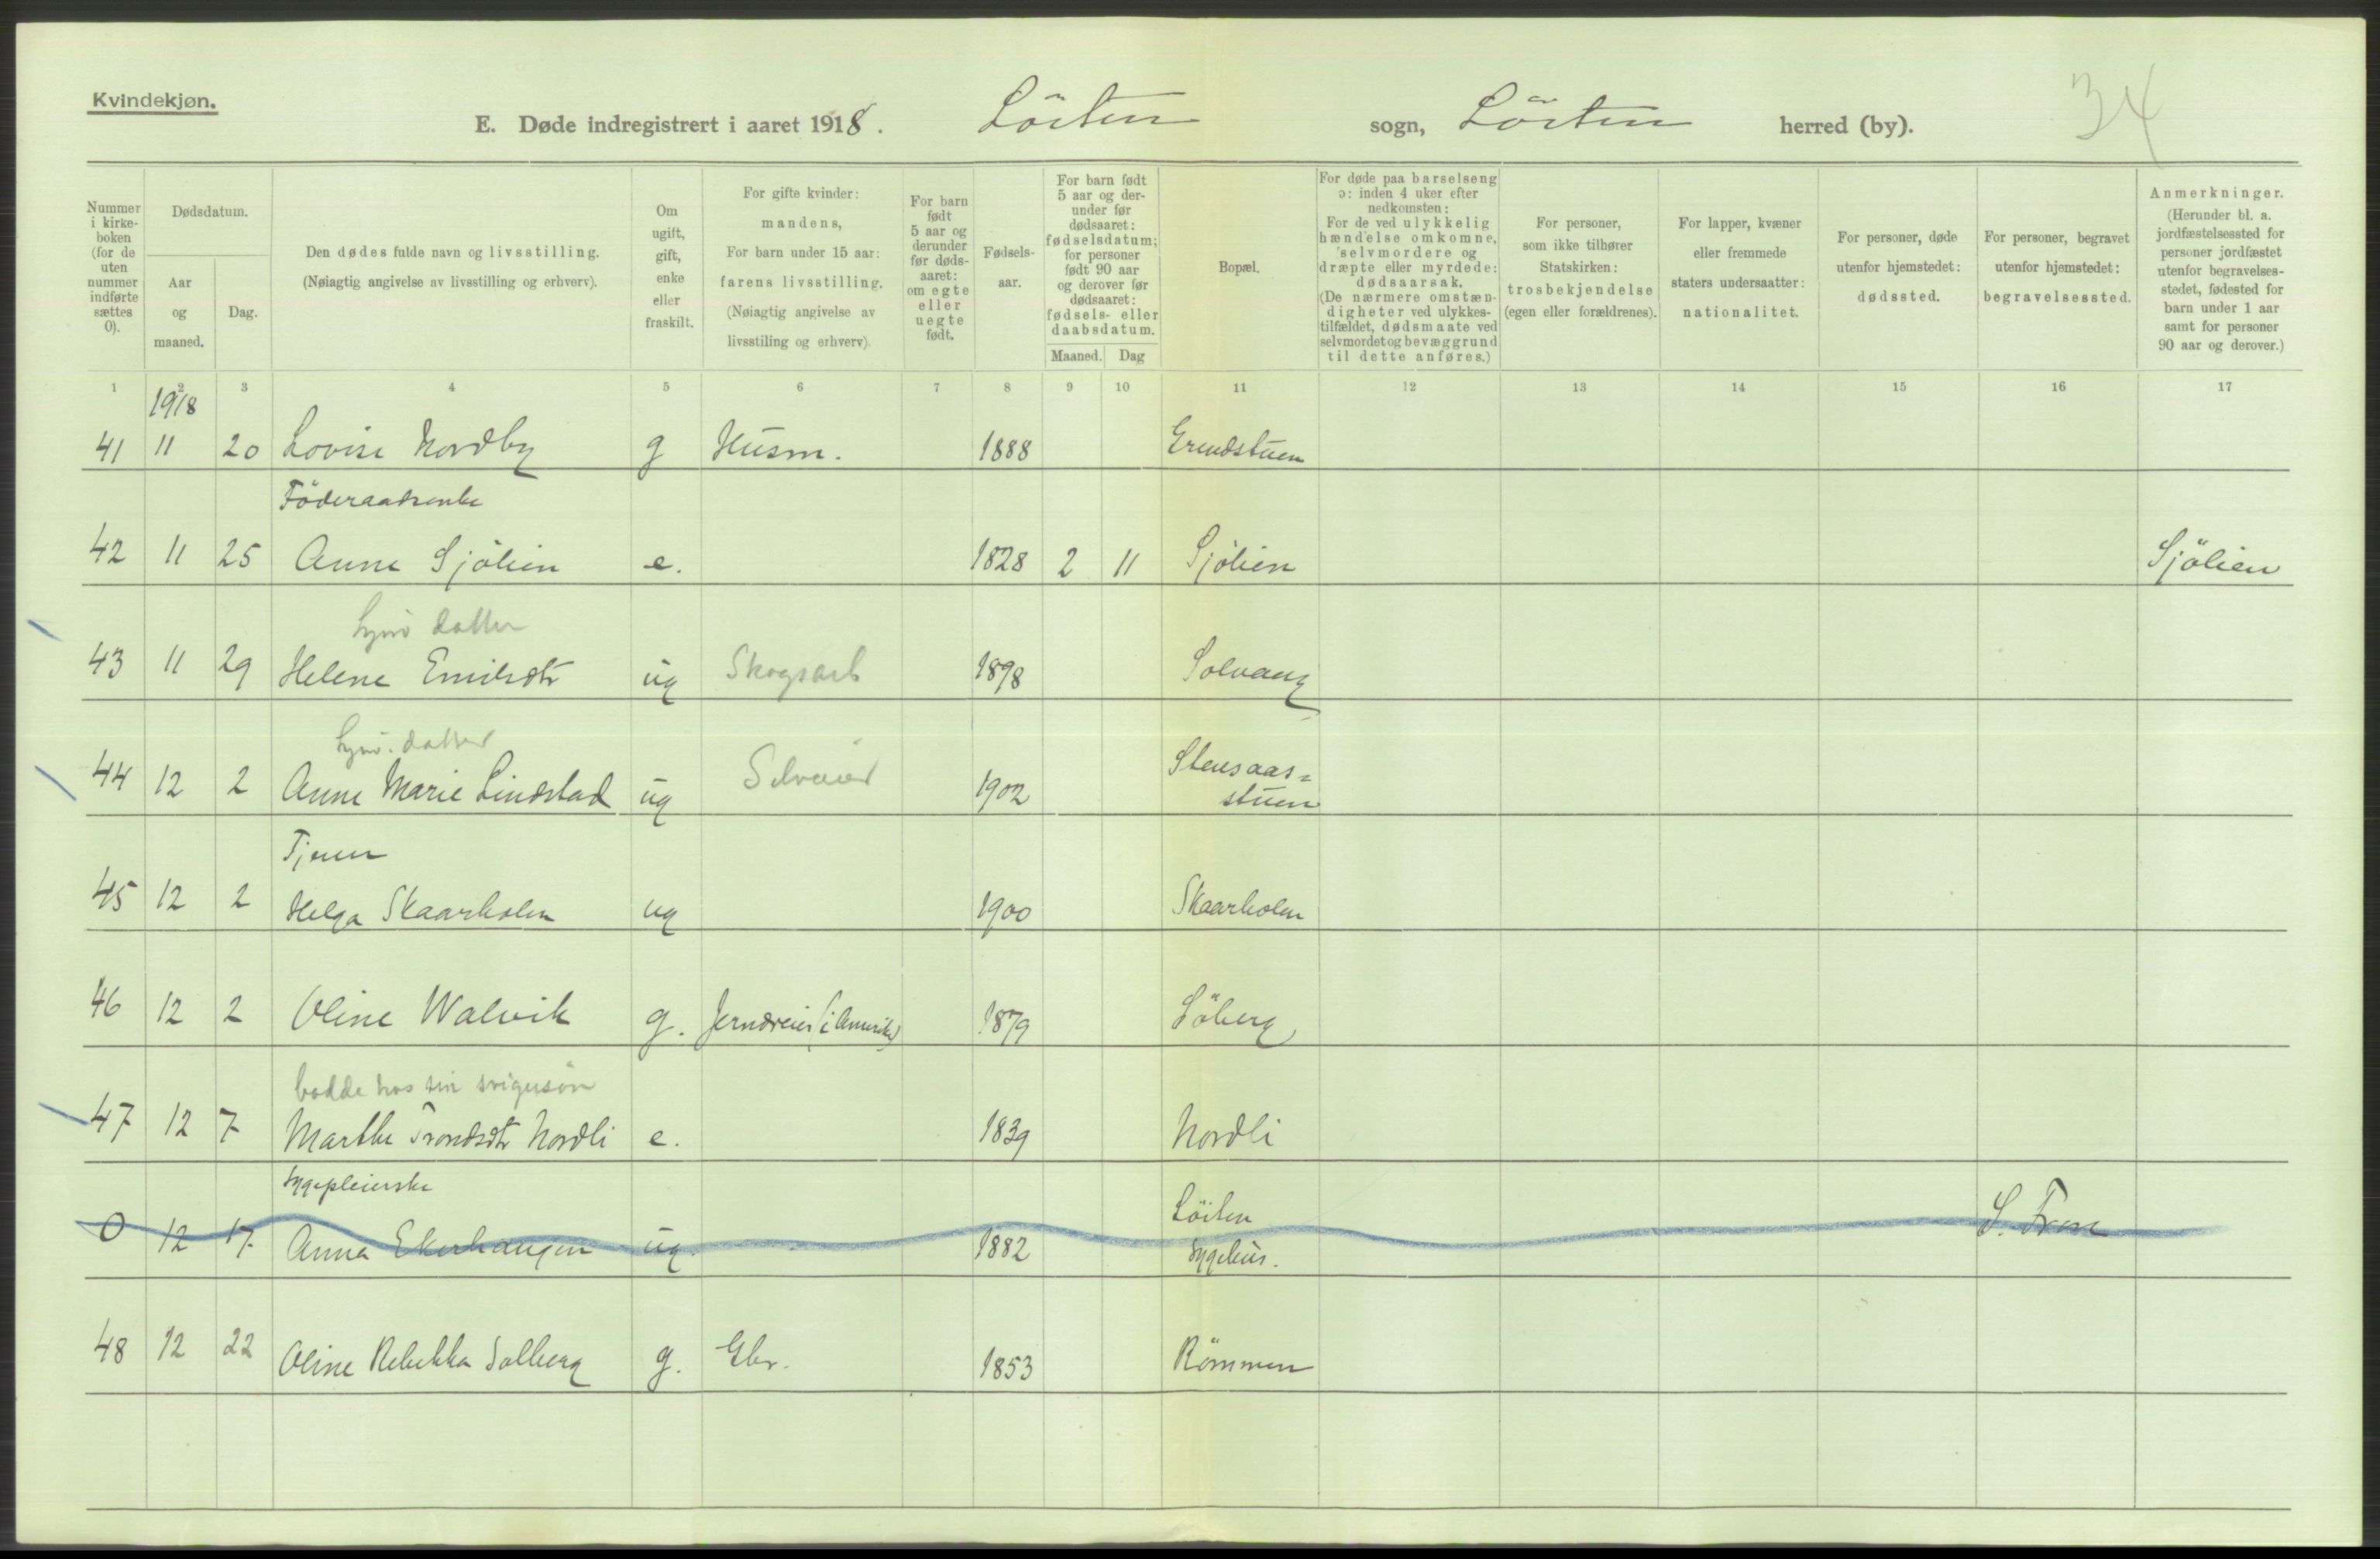 Kvindekjøn.
E. Døde indregistrert i aaret 1918. Löiten sogn, Löiten herred (by). 34
Nummer i kirkeboken (for de uten nummer indførte sættes 0).
Dødsdatum.
Aar og maaned.
Dag.
Den dødes fulde navn og livsstilling. (Nøiagtig angivelse av livsstilling og erhverv).
Om ugift, gift, enke eller fraskilt.
For gifte kvinder: mandens, For barn under 15 aar: farens livsstilling. (Nøiagtig angivelse av livsstiling og erhverv).
For barn født 5 aar og derunder før dødsaaret: om egte eller uegte født.
Fødselsaar.
For barn født 5 aar og derunder før dødsaaret: fødselsdatum; for personer født 90 aar og derover før dødsaaret: fødsels- eller daabsdatum.
Maaned. Dag
Bopæl.
For døde paa barselseng ɔ: inden 4 uker efter nedkomsten: For de ved ulykkelig hændelse omkomne, selvmordere og dræpte eller myrdede: dødsaarsak. (De nærmere omstændigheter ved ulykkestilfældet, dødsmaate ved selvmordet og bevæggrund til dette anføres.)
For personer, som ikke tilhører Statskirken: trosbekjendelse (egen eller forældrenes).
For lapper, kvæner eller fremmede staters undersaatter: nationalitet.
For personer, døde utenfor hjemstedet: dødssted.
For personer, begravet utenfor hjemstedet: begravelsessted.
Anmerkninger. (Herunder bl. a. jordfæstelsessted for personer jordfæstet utenfor begravelsesstedet, fødested for barn under 1 aar samt for personer 90 aar og derover.)
1 2 3 4 5 6 7 8 9 10 11 12 13 14 15 16 17
1918
41 11 20 Lovise Nordby g Husm. 1888 Grundstuen
Föderaadsenke
42 11 25 Anne Sjölien e. 1828 2 11 Sjölien Sjölien
hjmv datter
43 11 29 Helene Emilsdtr ug Skogsarb 1898 Solvang
hjmv. datter
44 12 2 Anne Marie Lindstad ug Selveier 1902 Stensaas=
stuen
Tjener
45 12 2 Helga Skaarholen ug 1900 Skaarholen
46 12 2 Oline Walvik g. (i Amerika) 1879 Söberg
bodde hos sin svigersön
47 12 7 Marthe Trondsdtr Nordli e. 1839 Nordli
Sygepleierske
0 12 17. Anna Ekerhaugen ug. 1882 Löiten
Sygehus. S. Fron
48 12 22 Oline Rebekka Solberg g. Gbr. 1853 Römmen